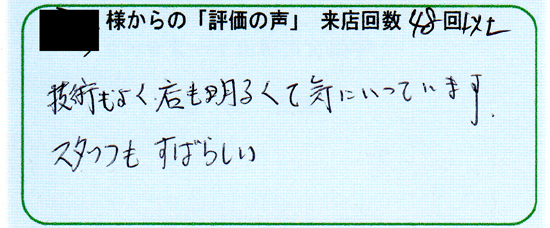 様からの「評価の声」 来店回数 48回以上
技術もよく店も明るくて気にいっています.
スタッフも すばらしい